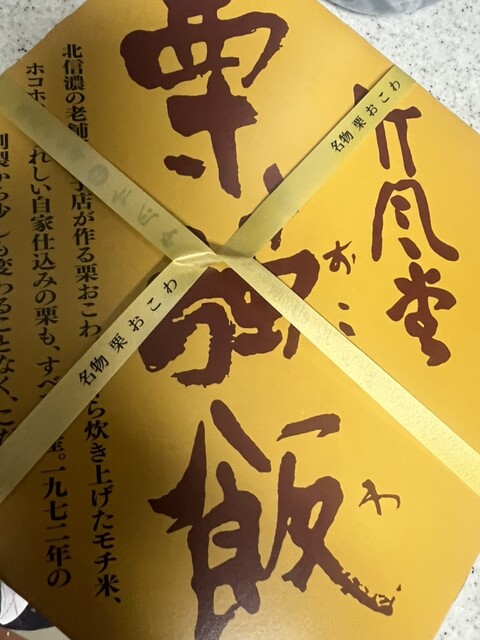 竹風堂
栗強飯
おこわ
名物 栗おこわ
名物 栗おこわ
北信濃の老舗 子店が作る栗おこわ ら炊き上げたモチ米、
ホコホ れしい自家仕込みの栗も、すべ 産。一九七二年の
創製から少しも変わることなく、こ